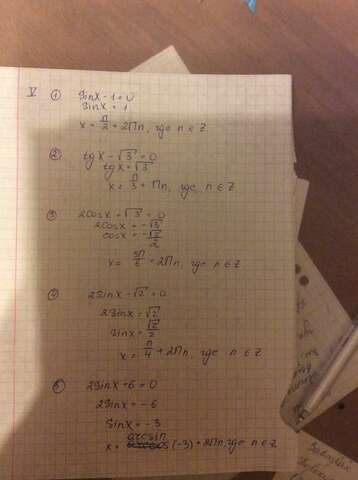 V ① sinx - 1 = 0
sinx = 1
x = π/2 + 2πn, где n ∈ Z
② tgx - √3 = 0
tgx = √3
x = π/3 + πn, где n ∈ Z
③ 2cosx + √3 = 0
2cosx = -√3
cosx = -√3/2
x = 5π/6 + 2πn, где n ∈ Z
④ 2sinx - √2 = 0
2sinx = √2
sinx = √2/2
x = π/4 + 2πn, где n ∈ Z
⑤ 2sinx + 6 = 0
2sinx = -6
sinx = -3
x = arcsin (-3) + 2πn, где n ∈ Z